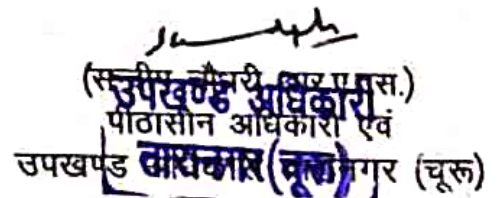 (सन्दीप चौधरी आर.ए.एस.)
उपखण्ड अधिकारी
पीठासीन अधिकारी एवं
उपखण्ड अधिकारी तारानगर (चूरू)
तारानगर (चूरू)